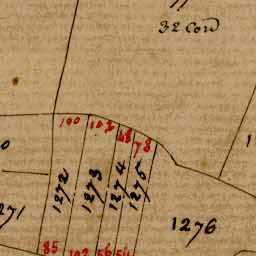 32 Cord
100
102
68
78
1272
1273
1274
1275
271
1276
85
102
56
54